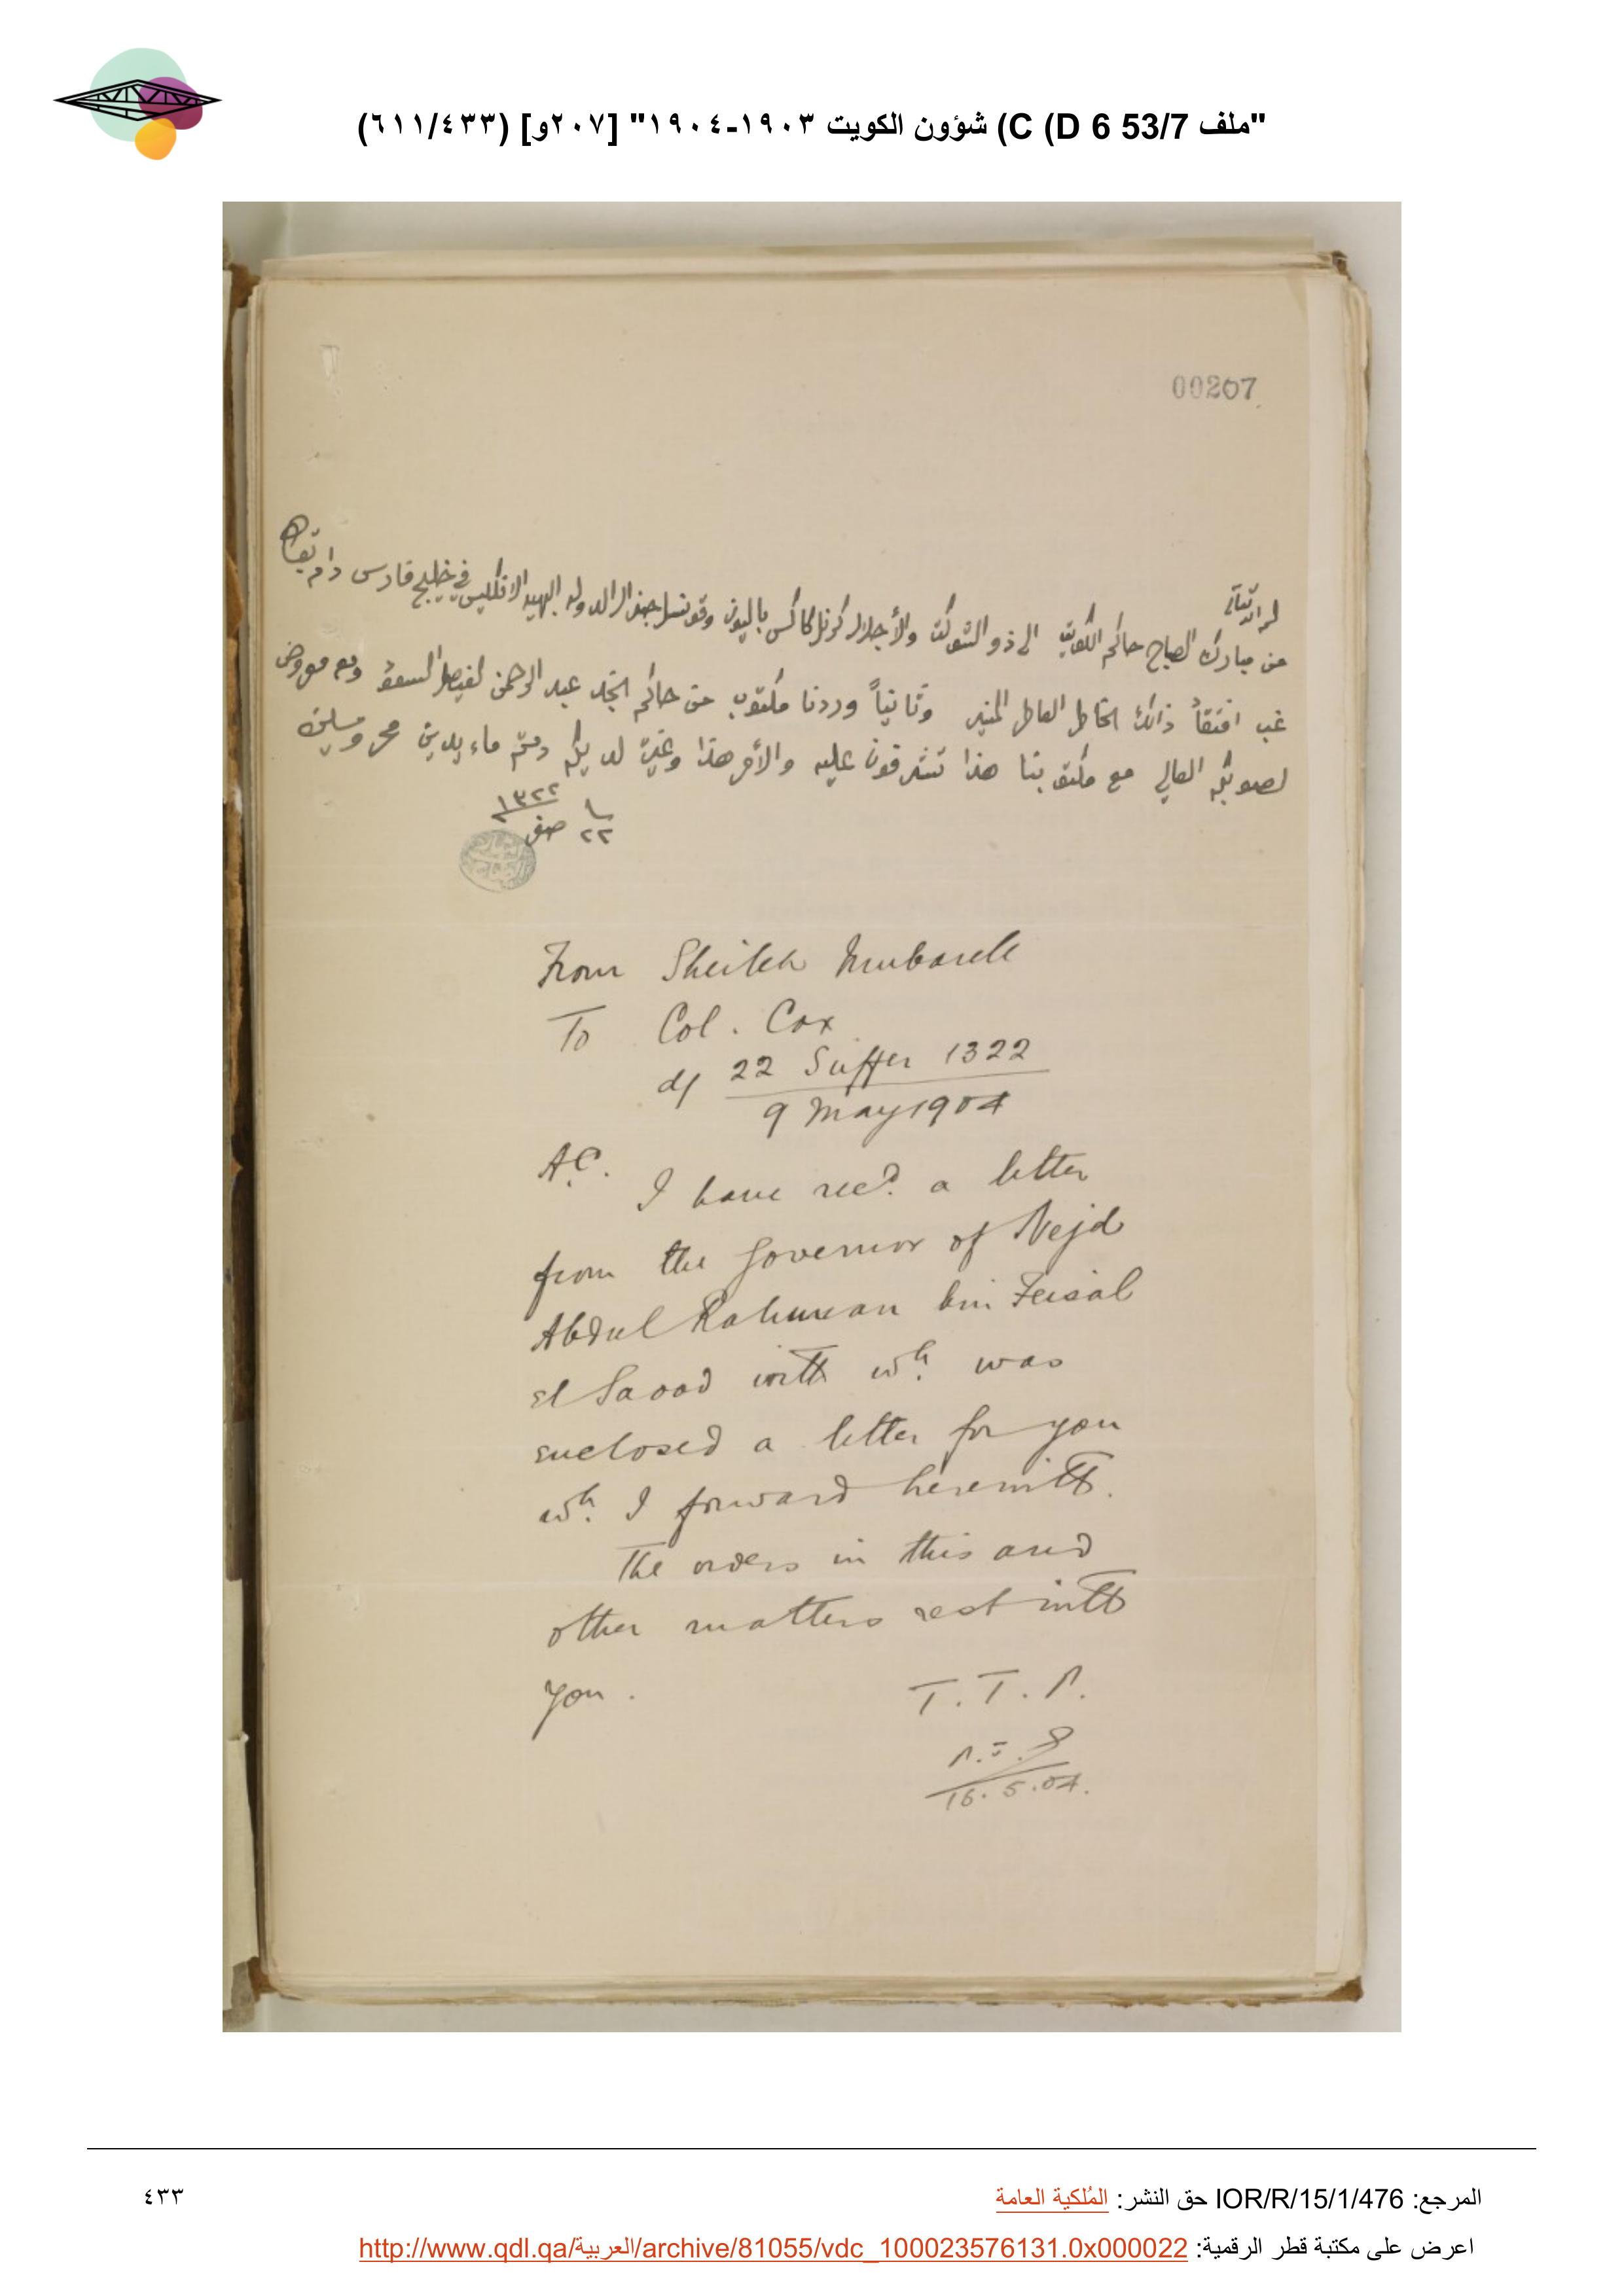 "ملف 53/7 C (D 6) شؤون الكويت ١٩٠٣-١٩٠٤" [٢٠٧و] (٤٣٣/٦١١)
00207
من مبارك الصباح حاكم الكويت الى ذو الشوكت والأجلال كرنل كاكس باليوز وقونسل جنرال الدوله البهيه الانكليس في خليج فارس دام بقاه
غب افتقاد ذالك الخاطر العاطر المنير وثانياً وردنا مكتوب من حاكم النجد عبد الرحمن الفيصل السعود ومع معروض
لصوبكم العالي مع مكتوبنا هذا تشرفون عليه والأمر هذا وغيره لديكم ودمتم ماء يدين محروسين
٢٢ صفر ١٣٢٢
From Sheikh Mubarek
To Col. Cox
d/ 22 Suffer 1322
9 May 1904
A.C. I have recd. a letter
from the Governor of Nejd
Abdul Rahman bin Feisal
el Saood with wh. was
enclosed a letter for you
wh. I forward herewith.
The orders in this and
other matters rest with
you.
T.T.
16.5.04.
المرجع: IOR/R/15/1/476 حق النشر: المُلكية العامة
٤٣٣
اعرض على مكتبة قطر الرقمية: http://www.qdl.qa/العربية/archive/81055/vdc_100023576131.0x000022